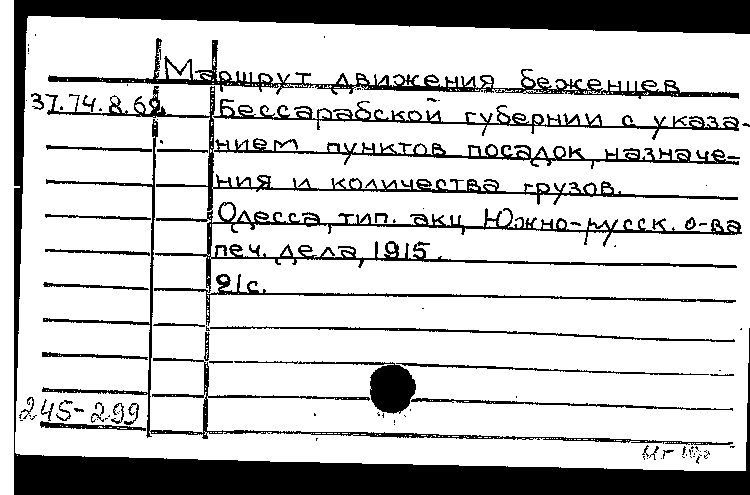 Маршрут движения беженцев
37.74.8.69. Бессарабской губернии с указа-
нием пунктов посадок, назначе-
ния и количества грузов.
Одесса, тип. акц. Южно-русск. о-ва
печ. дела, 1915.
21с.
245-299